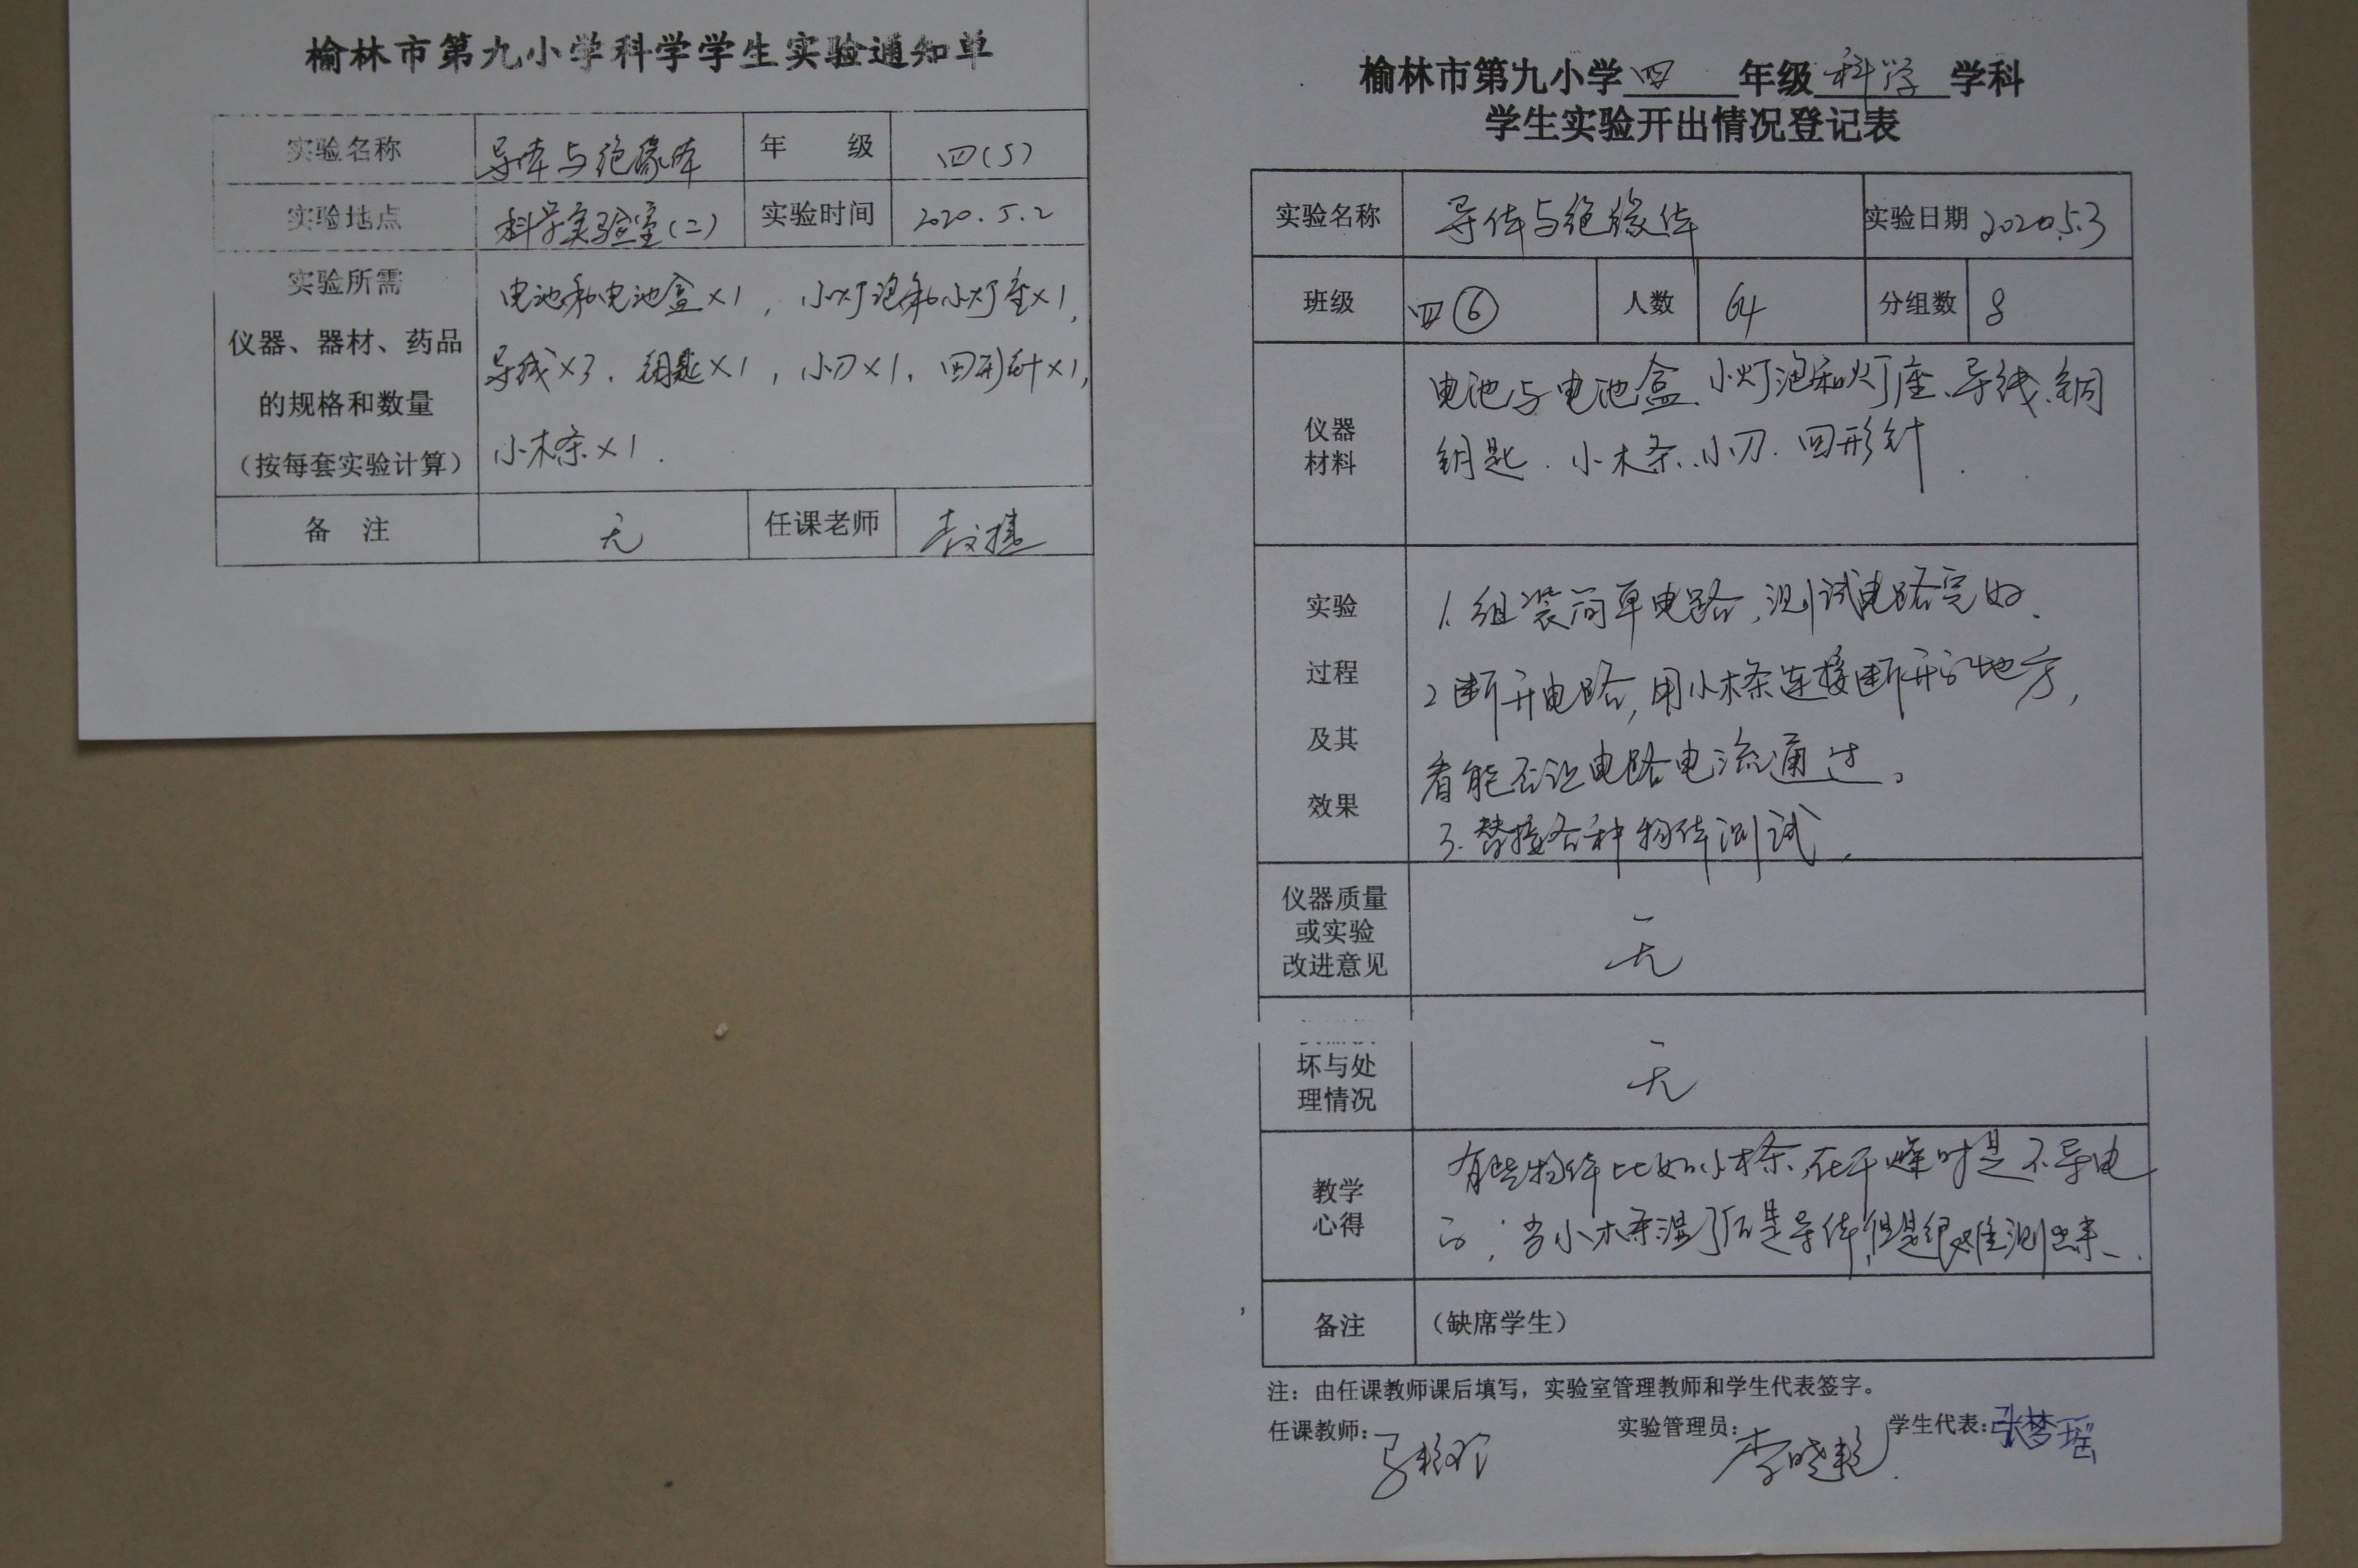 榆林市第九小学科学学生实验通知单
实验名称 导体与绝缘体 年 级 四(5)
实验地点 科学实验室(二) 实验时间 2020.5.2
实验所需
仪器、器材、药品
的规格和数量
(按每套实验计算)
电池和电池盒×1, 小灯泡和小灯座×1,
导线×3, 钥匙×1, 小刀×1, 回形针×1,
小木条×1.
备 注 无 任课老师
榆林市第九小学四年级科学学科
学生实验开出情况登记表
实验名称 导体与绝缘体 实验日期 2020.5.3
班级 四⑥ 人数 64 分组数 8
仪器
材料
电池与电池盒、小灯泡和灯座、导线、铜
钥匙、小木条、小刀、回形针.
实验
过程
及其
效果
1.组装简单电路,测试电路完好.
2断开电路,用小木条连接断开的地方,
看能否让电路电流通过。
3.替换各种物体测试.
仪器质量
或实验
改进意见
无
坏与处
理情况
无
教学
心得
有些物体比如小木条,在干燥时是不导电
的,当小木条湿了后是导体,但是很难测出来.
备注 (缺席学生)
注:由任课教师课后填写,实验室管理教师和学生代表签字。
任课教师: 实验管理员:李晓艳 学生代表:张梦瑶